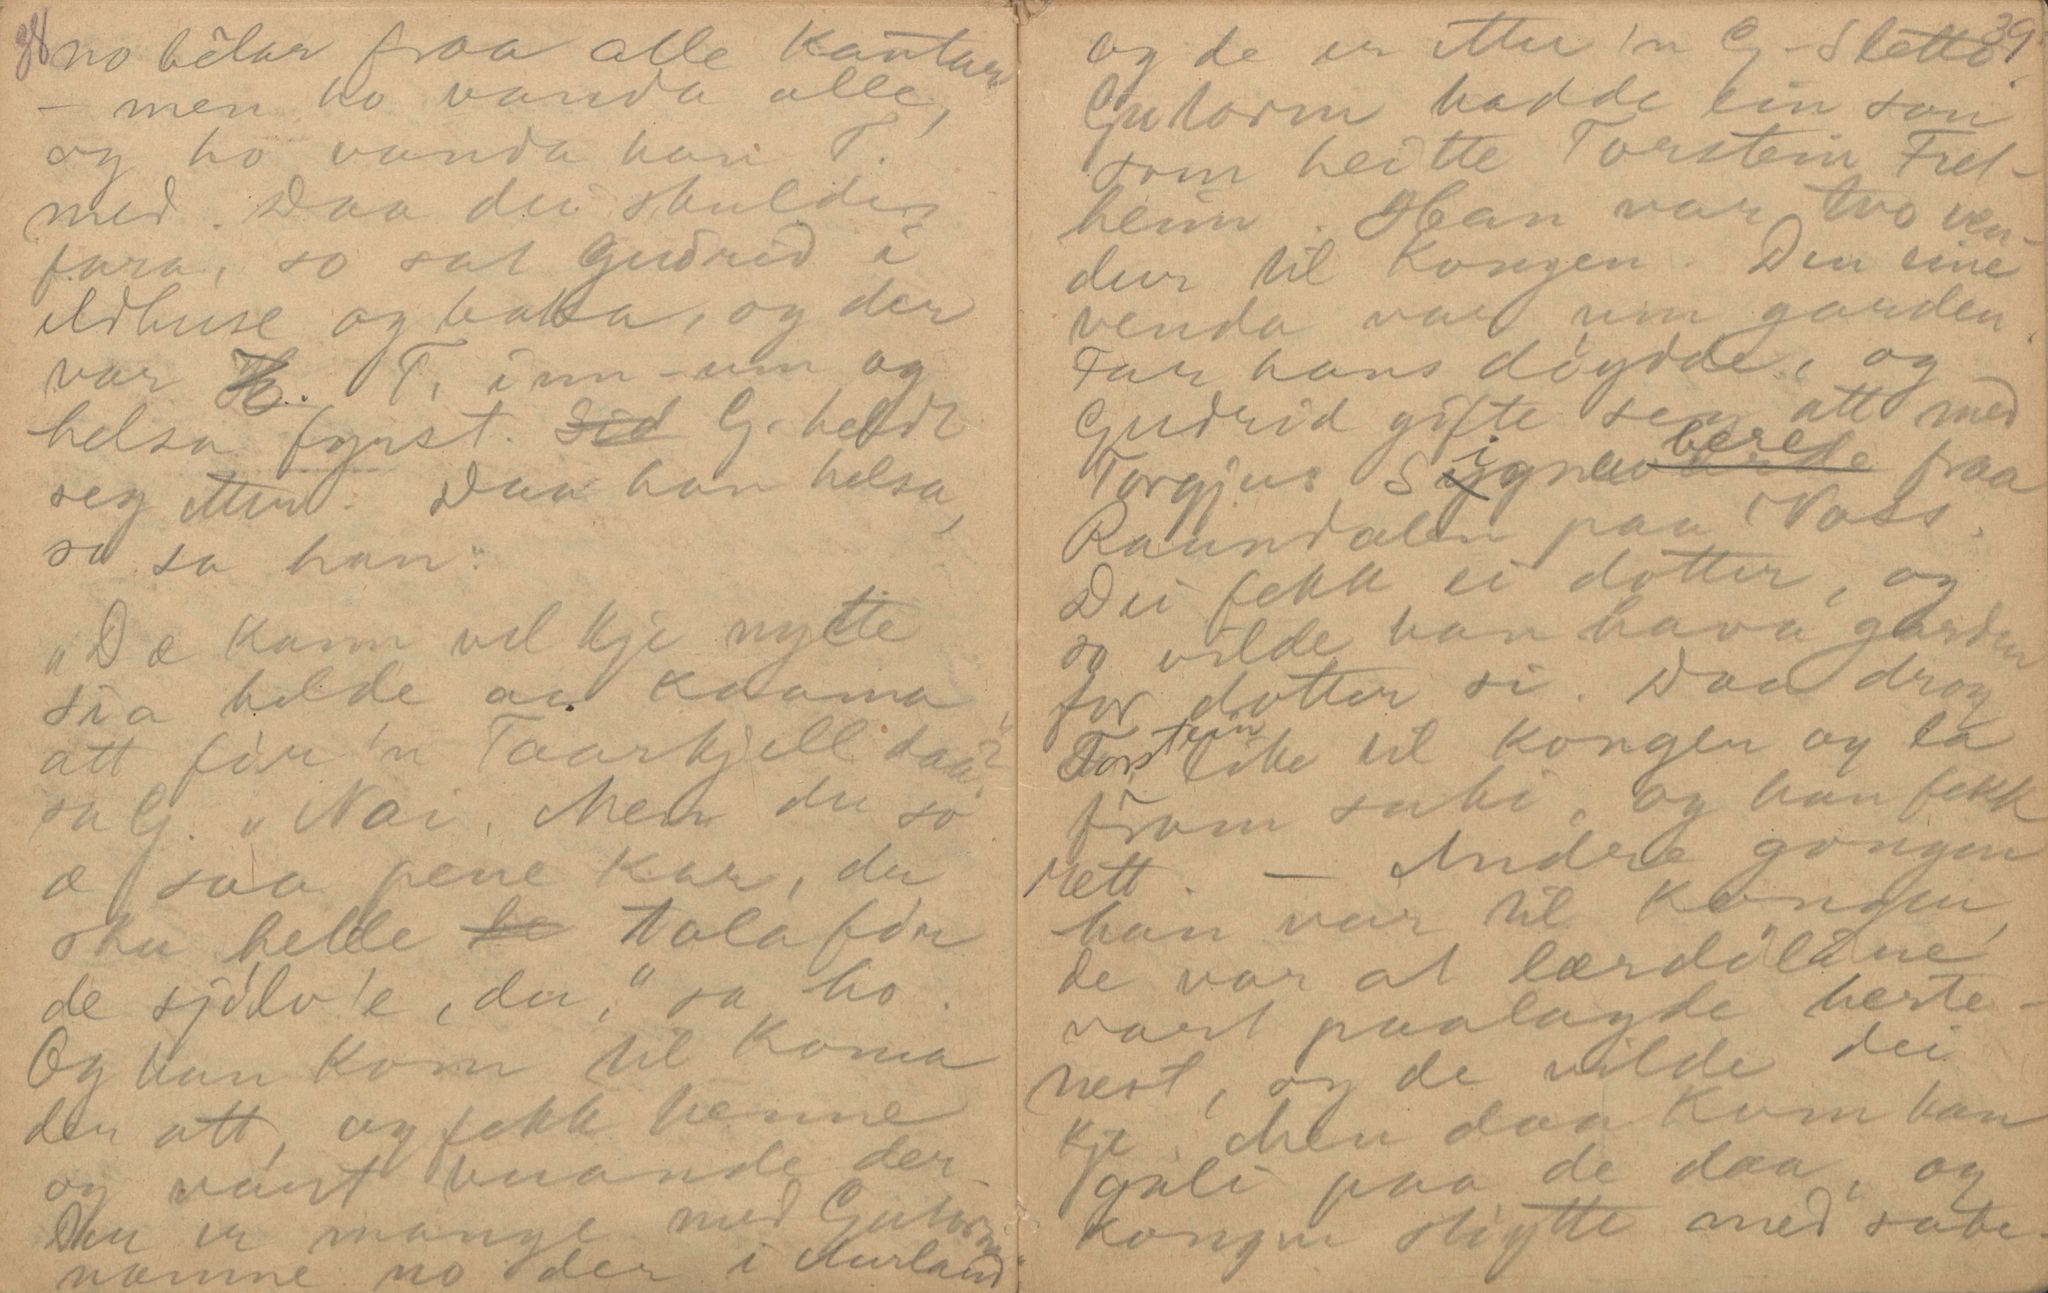 38
no bélar fraa alle kantar
- men ho vanda alle,
og ho vanda han T.
med. Daa dei skulde
fara, so sat Gudrid i
eldhuse og baka, og der
var H. T. inn-um og
helsa fyrst. Gid G. heldt
seg etter. Daa han helsa,
so sa han:
"Dæ kann vel kje nytte
sia helde aa kaama
att før 'n Taarkjell daa?"
sa G. "Nai. Men du so
æ saa pene kar, du
sku helle be tala før
de sjølv'e, du," sa ho.
Og han kom til Koma
der att, og fekk henne
og vart buande der
Der er mange med Gutorm
namne no der i Aurland
39
og de er etter 'n G-Sletto.
Gutorm hadde ein son
som heitte Torstein Fret-
heim. Han var tvo ven-
dur til Kongen. Den eine
venda var um garden.
Far hans døydde, og
Gudrid gifte seg att med
Torgjus Signe berg fraa
Raundalen paa Voss.
Dei fekk ei dotter, og
so vilde han hava garden
for dotter si. Daa drog
Torstein like til kongen og la
fram saki, og han fekk
rett. - Andre gongen
han var til Kongen,
de var at lærdølane
vart paalagde heste-
hest, og de vilde dei
kje. Men daa kom han
gali paa de daa, og
kongen stigtte med sabe-